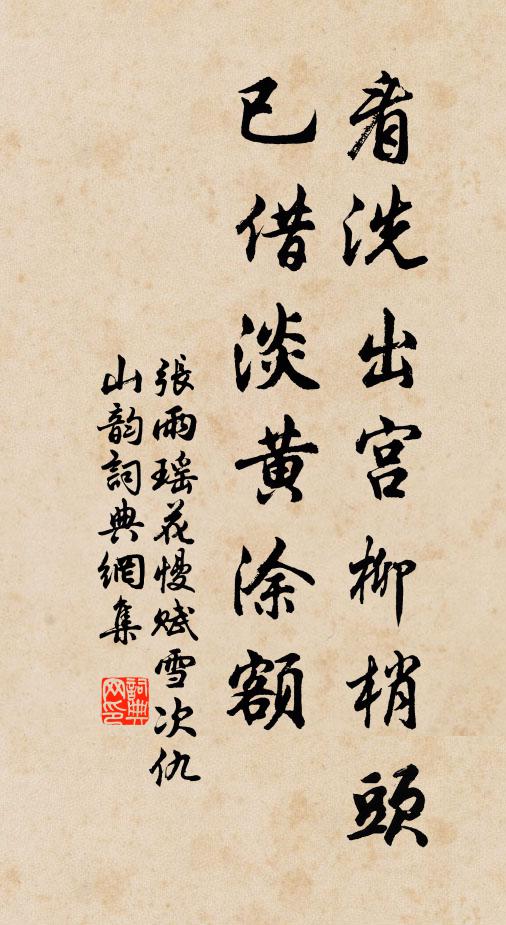 看洗出宫柳梢頭
已借淡黄涂額
張雨瑶花慢賦雪次仇
山韵詞典網集
詞典
网印